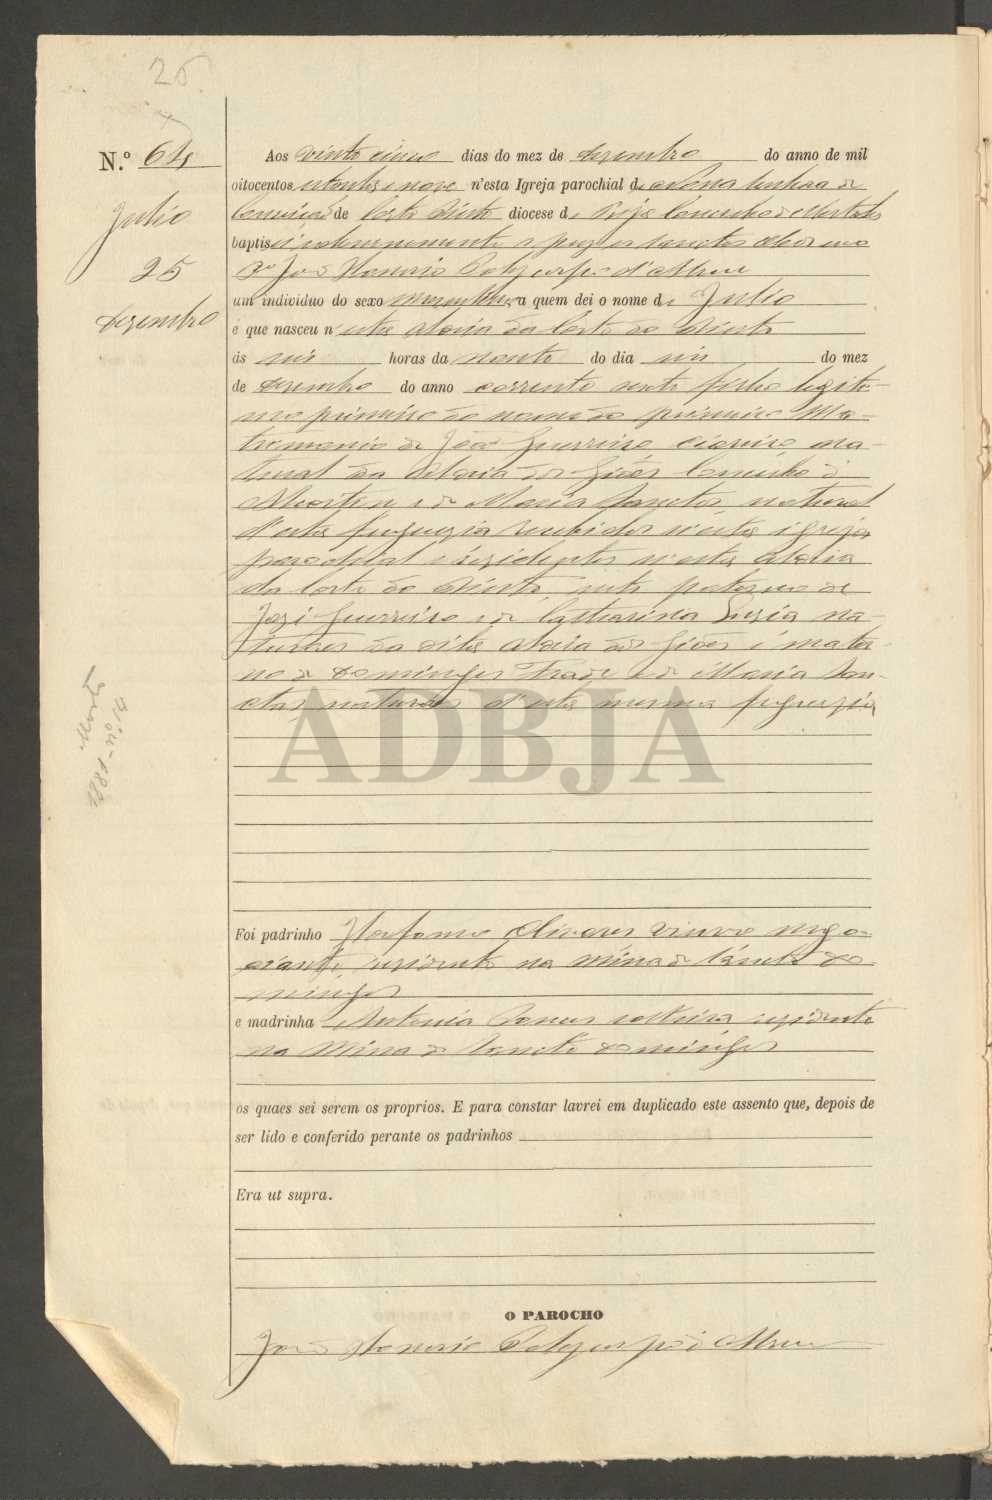 25
N.º 64
Julio
25
Dezembro
Morto
1881-nº 14
Aos vinte cinco dias do mez de dezembro do anno de mil
oitocentos oitenta e nove n'esta Igreja parochial de Nossa Senhora da
Conceição de Corte do Pinto diocese de Beja Concelho de Mertola
baptisei solemnemente e puz os sanctos oleos
João Honorio Polycarpo d'Abreu
um individuo do sexo masculino a quem dei o nome de Julio
e que nasceu n'esta aldeia da Corte do Pinto
ás seis horas da noute do dia seis do mez
de dezembro do anno corrente filho legiti-
mo primeiro do nome do primeiro Ma-
tremonio de João Guerreiro na-
tural da aldeia dos Giões Concelho d
Alcoutim e de Maria Sanctos natural
d'esta freguezia recebidos n'esta igreja
parochial e residentes n'esta aldeia
da Corte do Pinto, neto paterno de
José Guerreiro e de Catharina Luzia na-
turaes da dita aldeia dos Giões e mater-
no de Domingos e de Maria San-
ctos naturaes d'esta mesma freguezia
ADBJA
Foi padrinho Olivares viuvo nego-
ciante, residente na Mina de Sancto Do-
mingos
e madrinha Antonia solteira residente
na Mina de Sancto Domingos
os quaes sei serem os proprios. E para constar lavrei em duplicado este assento que, depois de
ser lido e conferido perante os padrinhos
Era ut supra.
O PAROCHO
João Honorio Polycarpo d'Abreu